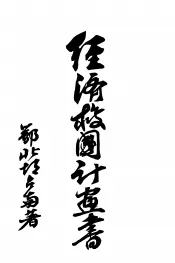 經濟救國計畫書
鄒北
著